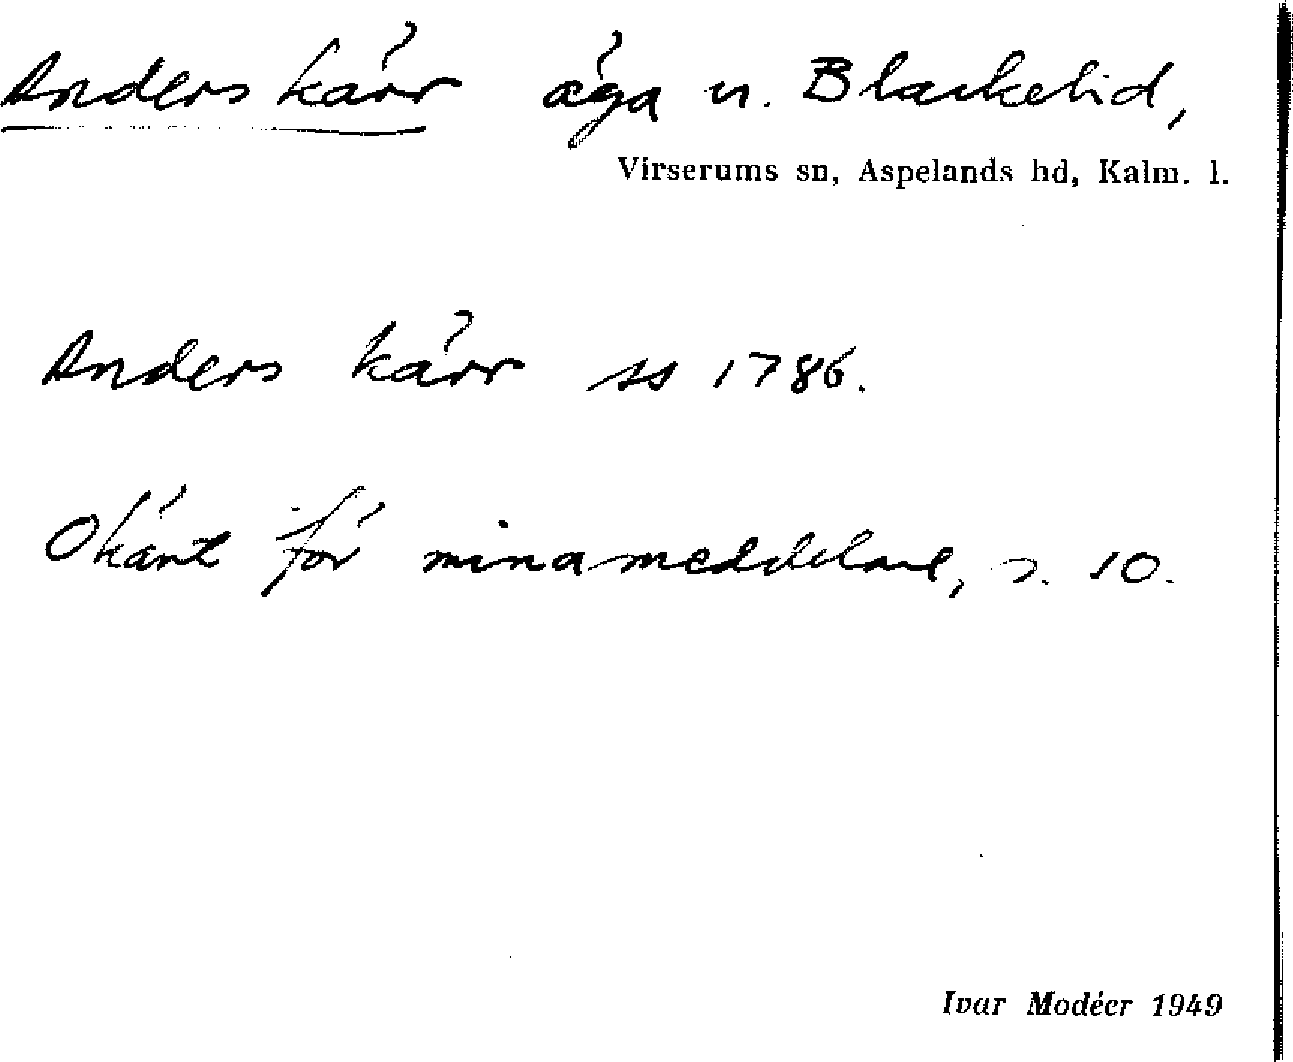 Anders kärr äga u. Blackelid,
Virserums sn, Aspelands hd, Kalm. l.
Anders kärr ss 1786.
Okänt för mina meddelare, s. 10.
Ivar Modéer 1949